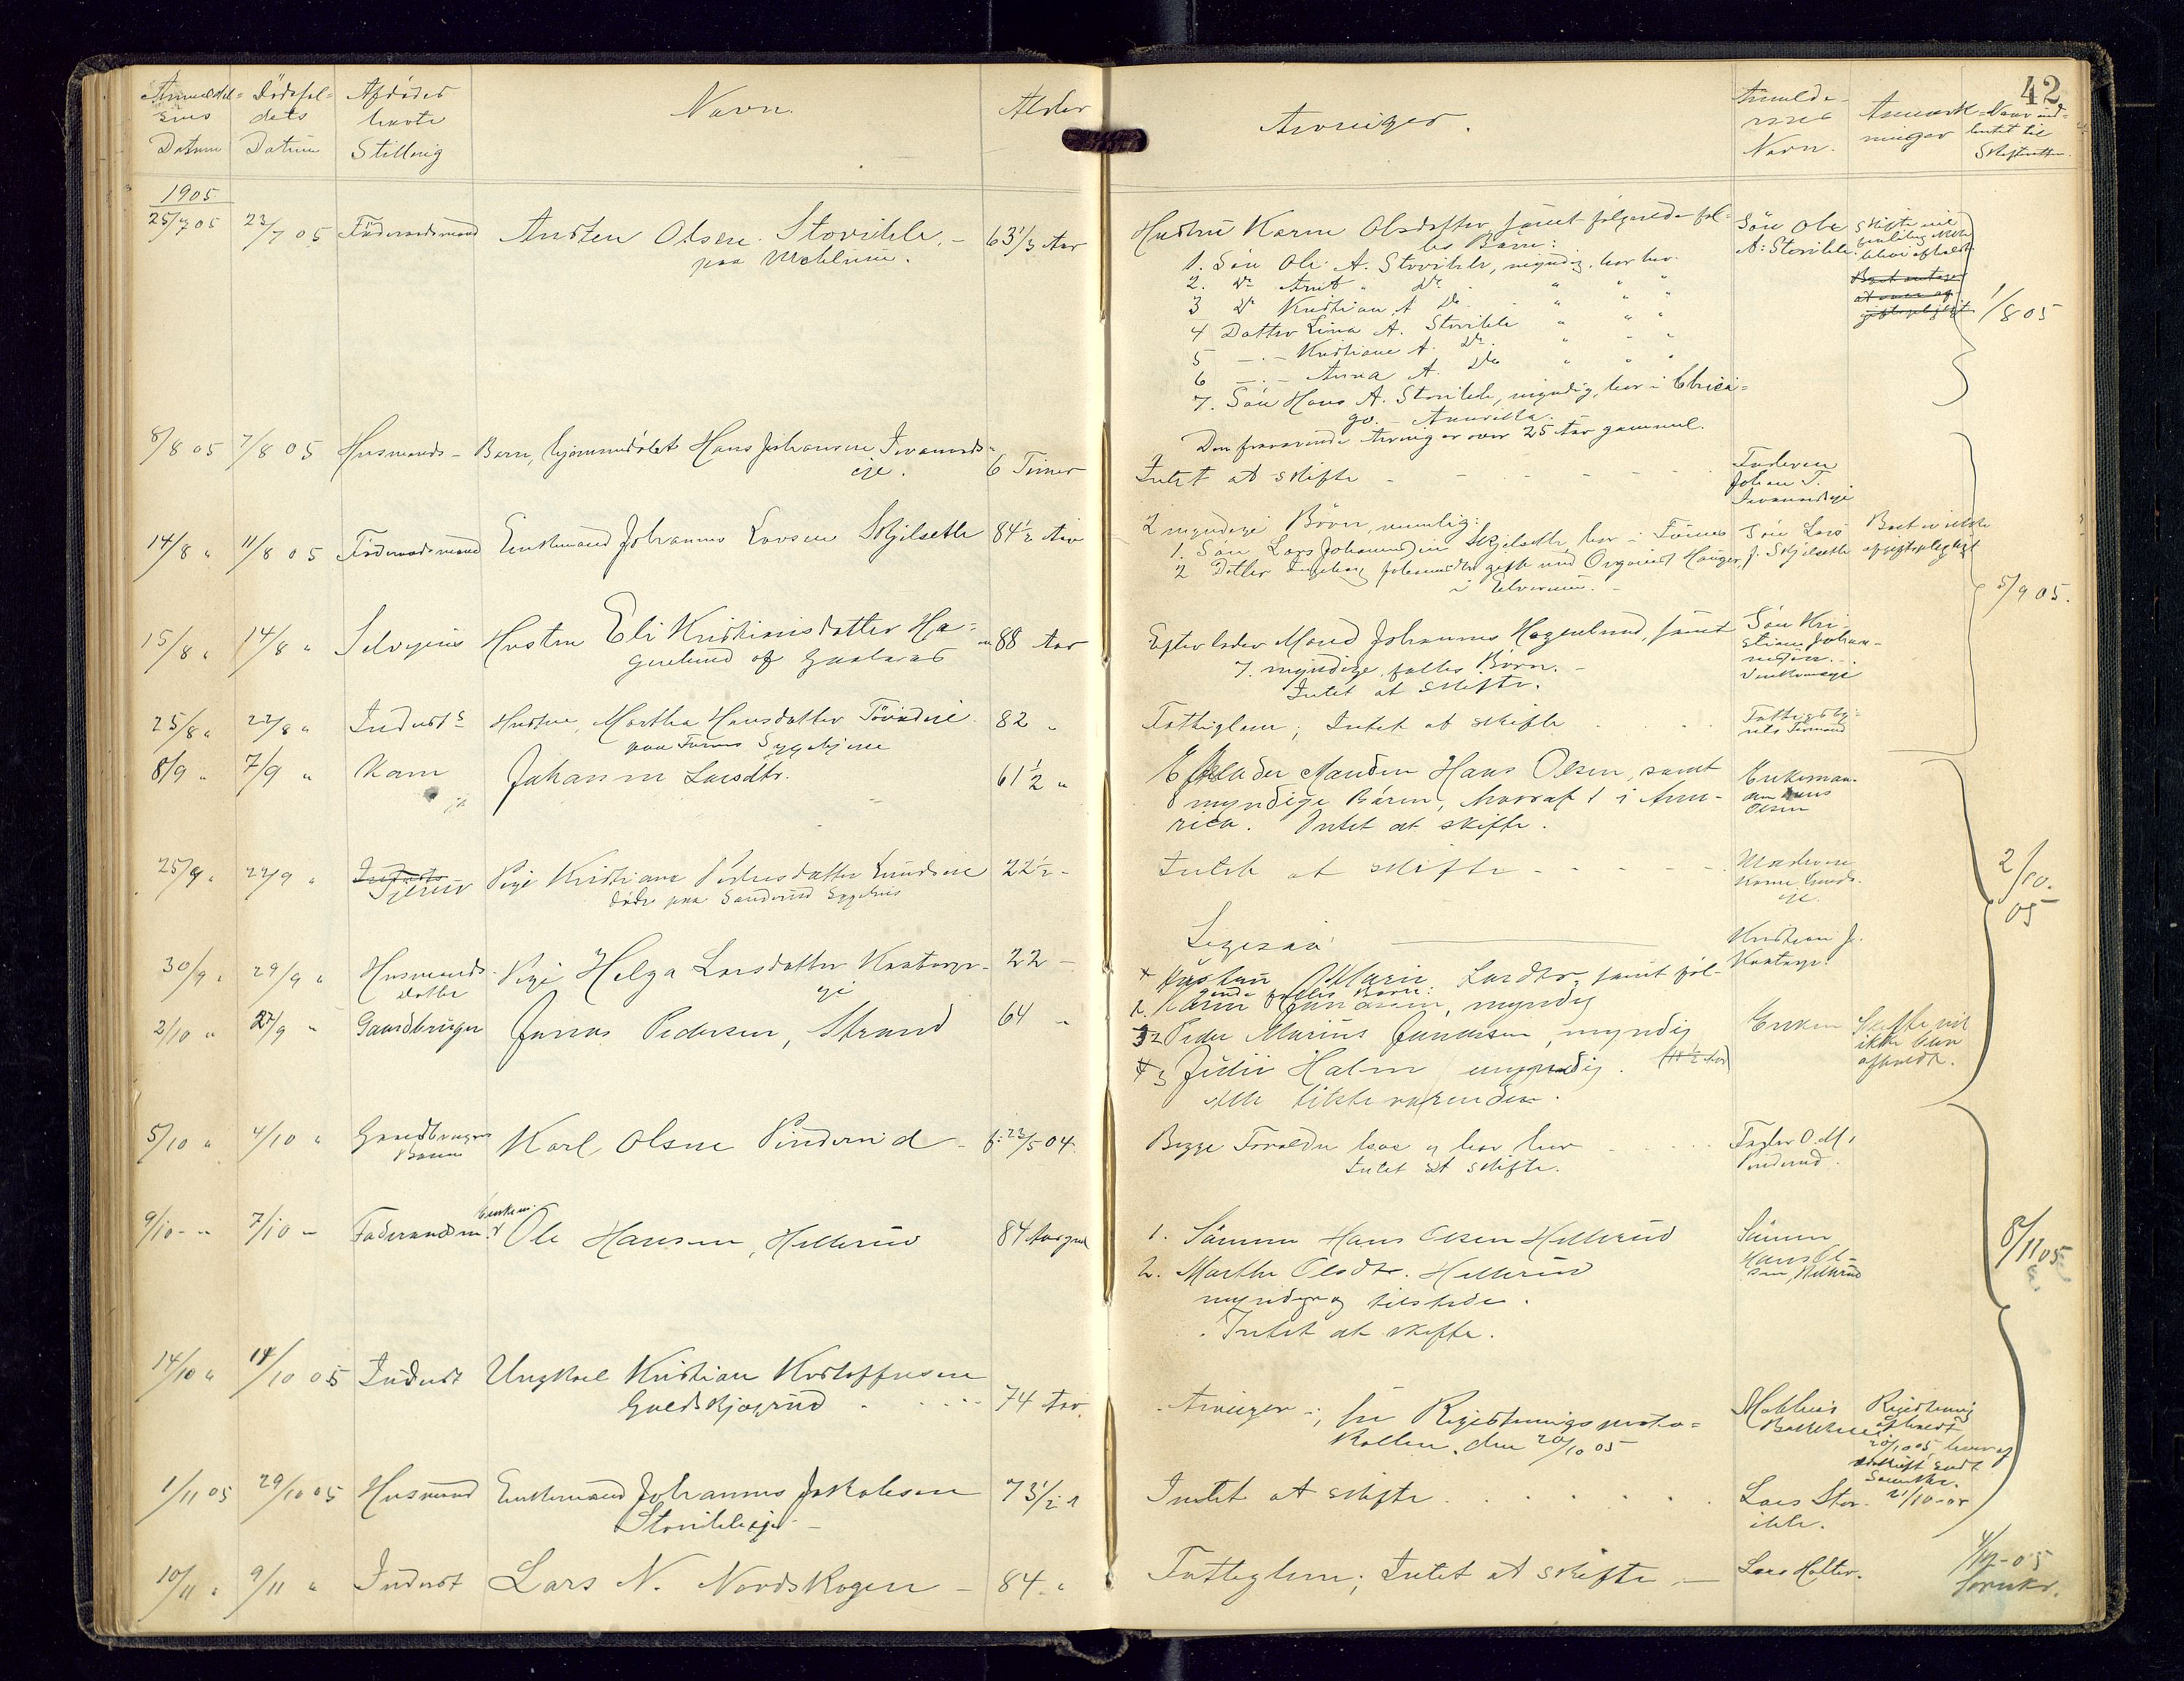 42
Anmeldel- Dödsfal- Afdödes Navn. Alder Arvinger. Anmelde- Anmærk- Naar ind-
sens dets levevei rens ninger sendt til
Datum Datum Stilling Navn. Skifteretten
1905
25/7 05 23/7 05 Föderaadsmand Austen Olsen Stovikle. - 63 1/3 Aar
Hustru Karen Olsdatter, samt følgende fæl-
les Børn:
1. Søn Ole A. Stovikle, myndig, bor her.
2. Do Arnt " Do " " "
3 Do Kristian A Do " " "
4 Datter Lina A. Stovikle " " "
5 -.- Kristiane A. Do " " "
6 -.- Anna A. Do " " "
7. Søn Hans A. Stovikle, myndig, bor i Chica-
go. Amerika.
Den fraværende Arving er over 25 Aar gammel.
Søn Ole
A. Stovikle.
Skifte vil
1/8 05
8/8 05 7/8 05 Husmands- Barn, hjemmedøbt Hans Johansen
eje. 6 Timer
Intet at skifte - - - - -
Faderen
Johan T.
14/8 " 11/8 05 Föderaadsmand Enkemand Johannes Larsen Skjelseth 84 1/2 Aar
2 myndige Børn, nemlig:
1. Søn Lars Johannessen Skjelseth, bor i
2 Datter Ingeborg gift med Organist Hanger,
i Elverum. -
Søn Lars
J. Skjelseth
Boet er ikke
afgiftspligtigt
5/9 05.
15/8 " 14/8 " Selveiers Hustru Eli Kristiansdatter Ha-
genlund af 88 Aar
Efterlader Mand Johannes Hagenlund, samt
7 myndige fælles Børn. -
Intet at skifte.
Søn Kri-
stian Johan-
nesen
25/8 " 22/8 " Inderst s Hustru, Marthe Hansdatter
paa Sygehjem 82 "
Fattiglem; Intet at skifte
8/9 " 7/9 " Kam Johanne Larsdtr. 61 1/2 "
Efterlader Manden Hans Olsen, samt
8 myndige Børn, hvoraf 1 i Ame-
rica. Intet at skifte.
Enkeman-
den Hans
Olsen
25/9 " 22/9 " Tjener Pige Kristiane Pedersdatter
døde paa Sanderud Sygehus 22 1/2 -
Intet at skifte - - - - -
Moderen
Karen
eje.
2/10.
05
30/9 " 29/9 " Husmands- Pige Helga Larsdatter
datter eje 22 -
Ligesaa
Kristian J.
2/10 " 27/9 " Gaardbruger Jonas Pedersen, Strand 64 "
Hustru Marie Larsdtr, samt føl-
gende fælles Børn:
1. Karen Jonassen, myndig
2 Peder Marius Jonassen, myndig
3 Julie Halm umyndig.
Alle tilstedeværende.
Enken
Skifte vil
ikke blive
afholdt.
5/10 " 4/10 " Gaardbrugers Karl Olsen Pinderud - f. 23/5 04.
Barn
Begge Forældre leve og bor her
Intet at skifte.
Fader O. M.
Pinderud.
9/10 - " 7/10 - Föderaadsm. Enkem. Ole Hansen, Hellerud 84 Aar gml
1. Sønnen Hans Olsen Hellerud
2. Marthe Olsdtr. Hellerud
myndige og tilstede.
Intet at skifte.
Sønnen
Hans Ol-
sen, Hellerud
8/11 05
14/10 " 11/10 05 Inderst Ungkarl Kristian Kristoffersen
74 Aar
Arvinger -, se Registreringsproto-
kollen, den 20/10 05
Mathias
Registrering
afholdt
20/10 05, hvoraf
Udskrift sendt
21/10-05
1/11 05 29/10 05 Husmand Enkemand Johannes Jakobsen
Stovikleeje - 73 1/2 "
Intet at skifte . . . . . .
Lars Stov-
ikle.
10/11 " 9/11 " Inderst Lars N. Nordskogen - 84 "
Fattiglem; Intet at skifte. -
Lars Holter.
4/12-05